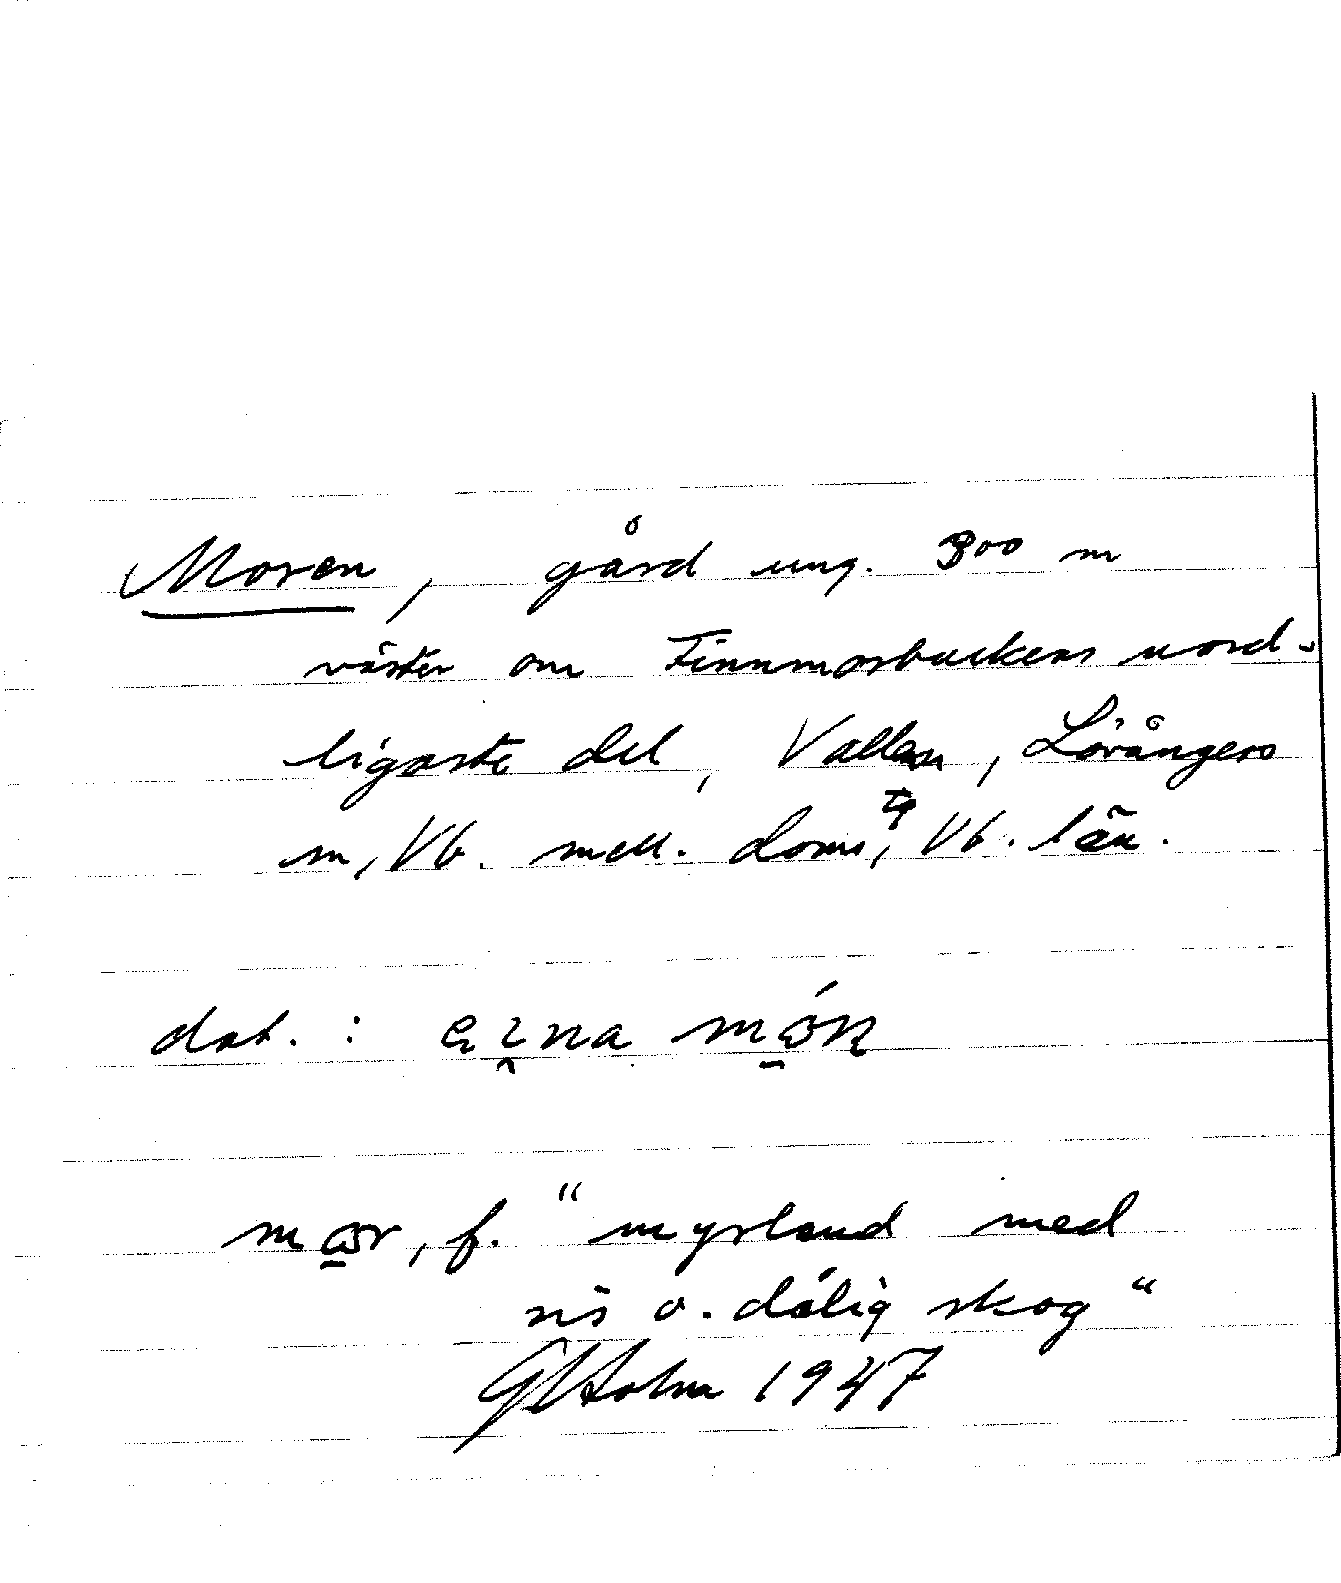 Moren, gård ung. 300 m
väster om Finnmorbackens nord-
ligaste del, Vallen, Lövångers
sn, Vb. mell. doms, Vb. län.
dat.:
f. "myrland med
ris o. dålig skog"
GHolm 1947